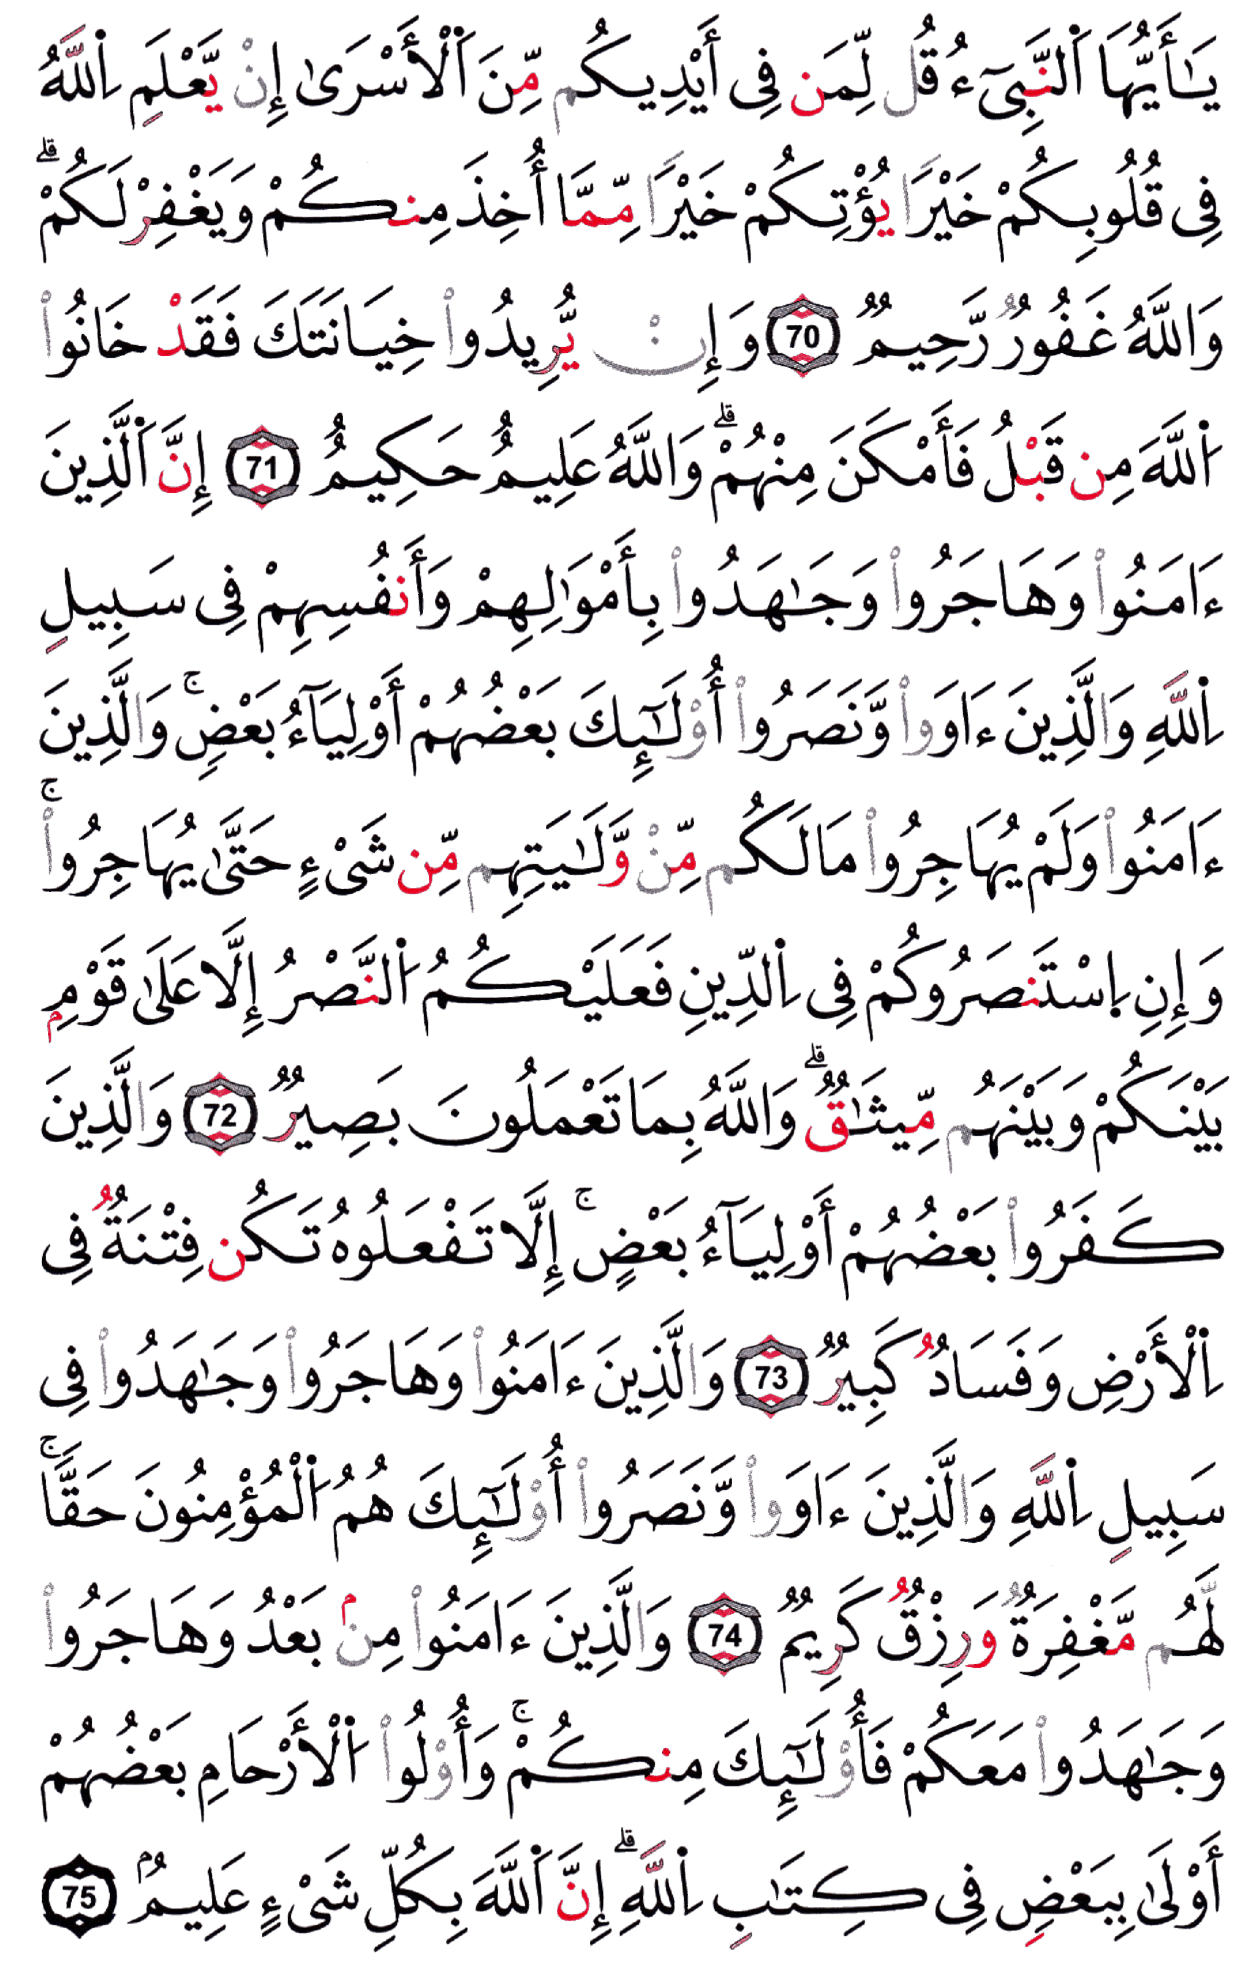 يَـٰٓأَيُّهَا اَ۬لنَّبِےٓءُ قُل لِّمَن فِےٓ أَيْدِيكُم مِّنَ اَ۬لْأَسْرَىٰٓ إِنْ يَّعْلَمِ اِ۬للَّهُ
فِے قُلُوبِكُمْ خَيْرًا يُؤْتِكُمْ خَيْرًا مِّمَّآ أُخِذَ مِنكُمْ وَيَغْفِرْ لَكُمْۗ
وَاللَّهُ غَفُورٌ رَّحِيمٌ 70 وَإِنْ يُّرِيدُواْ خِيَانَتَكَ فَقَدْ خَانُواْ
اُ۬للَّهَ مِن قَبْلُ فَأَمْكَنَ مِنْهُمْۗ وَاللَّهُ عَلِيمٌ حَكِيمٌ 71 إِنَّ اَ۬لَّذِينَ
ءَامَنُواْ وَهَاجَرُواْ وَجَـٰهَدُواْ بِأَمْوَٰلِهِمْ وَأَنفُسِهِمْ فِے سَبِيلِ
اِ۬للَّهِ وَالَّذِينَ ءَاوَواْ وَّنَصَرُوٓاْ أُوْلَـٰٓئِكَ بَعْضُهُمْ أَوْلِيَآءُ بَعْضٍۚ وَالَّذِينَ
ءَامَنُواْ وَلَمْ يُهَاجِرُواْ مَا لَكُم مِّنْ وَّلَـٰيَتِهِم مِّن شَےْءٍ حَتَّىٰ يُهَاجِرُواْۚ
وَإِنِ اِ۪سْتَنصَرُوكُمْ فِے اِ۬لدِّينِ فَعَلَيْكُمُ اُ۬لنَّصْرُ إِلَّا عَلَىٰ قَوْمِۢ
بَيْنَكُمْ وَبَيْنَهُم مِّيثَـٰقٌۗ وَاللَّهُ بِمَا تَعْمَلُونَ بَصِيرٌ 72 وَالَّذِينَ
كَفَرُواْ بَعْضُهُمْ أَوْلِيَآءُ بَعْضٍۚ إِلَّا تَفْعَلُوهُ تَكُن فِتْنَةٌ فِے
اِ۬لْأَرْضِ وَفَسَادٌ كَبِيرٌ 73 وَالَّذِينَ ءَامَنُواْ وَهَاجَرُواْ وَجَـٰهَدُواْ فِے
سَبِيلِ اِ۬للَّهِ وَالَّذِينَ ءَاوَواْ وَّنَصَرُوٓاْ أُوْلَـٰٓئِكَ هُمُ اُ۬لْمُؤْمِنُونَ حَقًّاۚ
لَّهُم مَّغْفِرَةٌ وَرِزْقٌ كَرِيمٌ 74 وَالَّذِينَ ءَامَنُواْ مِنۢ بَعْدُ وَهَاجَرُواْ
وَجَـٰهَدُواْ مَعَكُمْ فَأُوْلَـٰٓئِكَ مِنكُمْۚ وَأُوْلُواْ اُ۬لْأَرْحَامِ بَعْضُهُمْ
أَوْلَىٰ بِبَعْضٍ فِے كِتَـٰبِ اِ۬للَّهِۗ إِنَّ اَ۬للَّهَ بِكُلِّ شَےْءٍ عَلِيمٌۢ 75